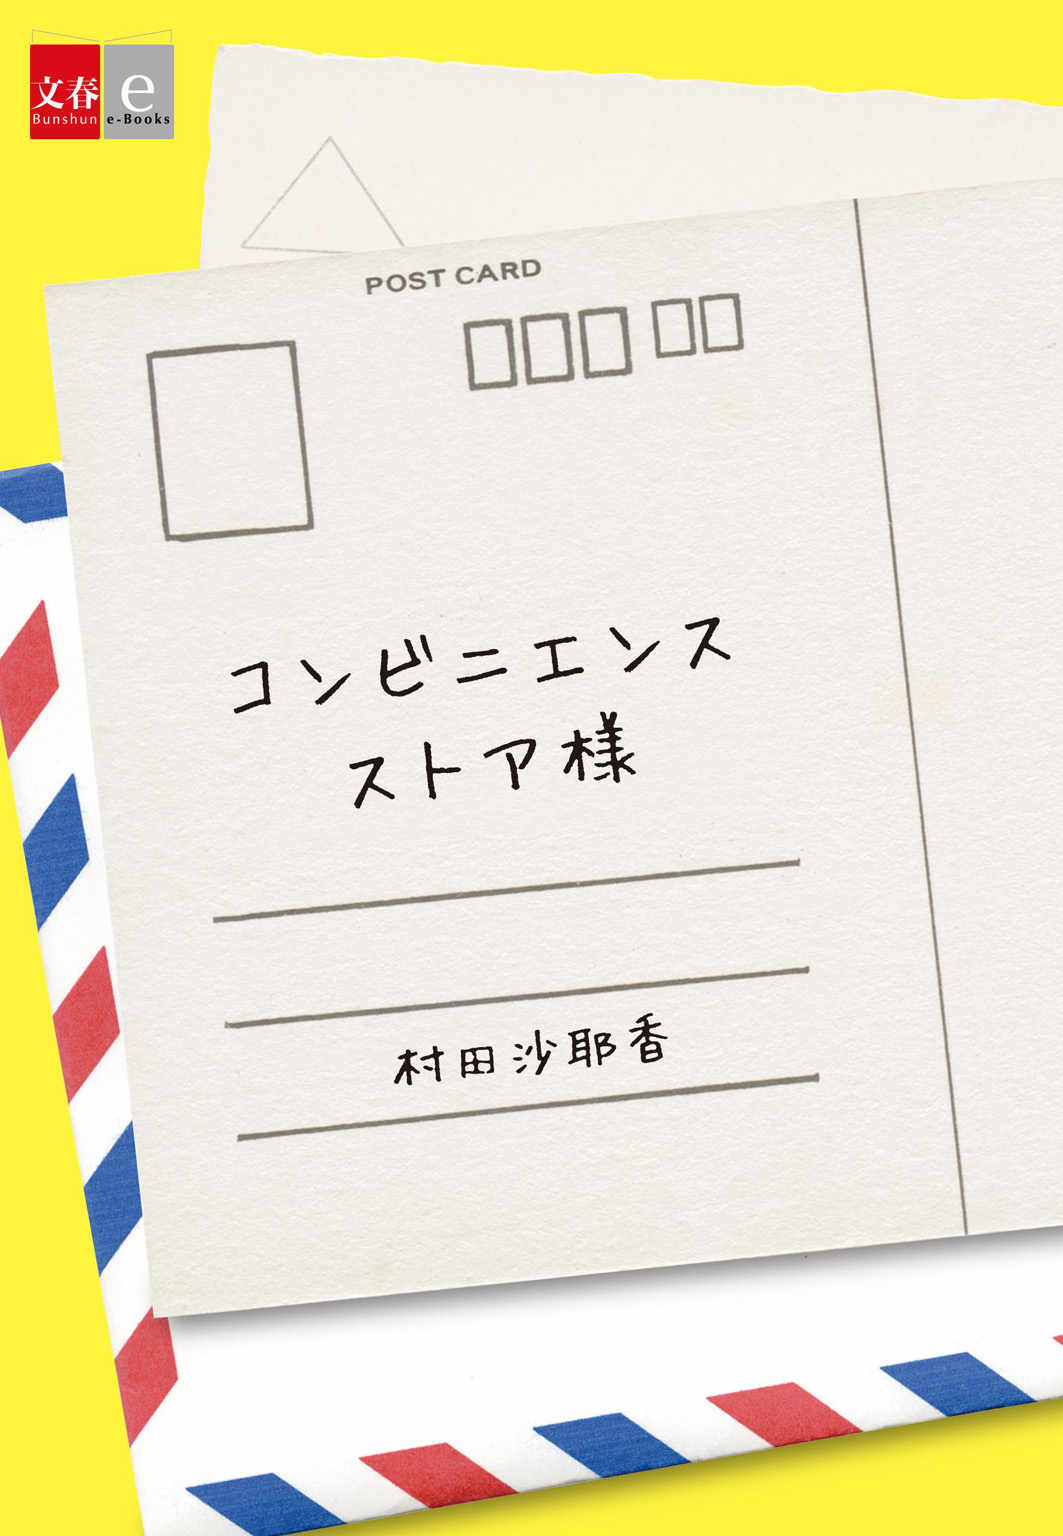 文春 e
Bunshun e-Books
POST CARD
コンビニエンス
ストア様
村田沙耶香